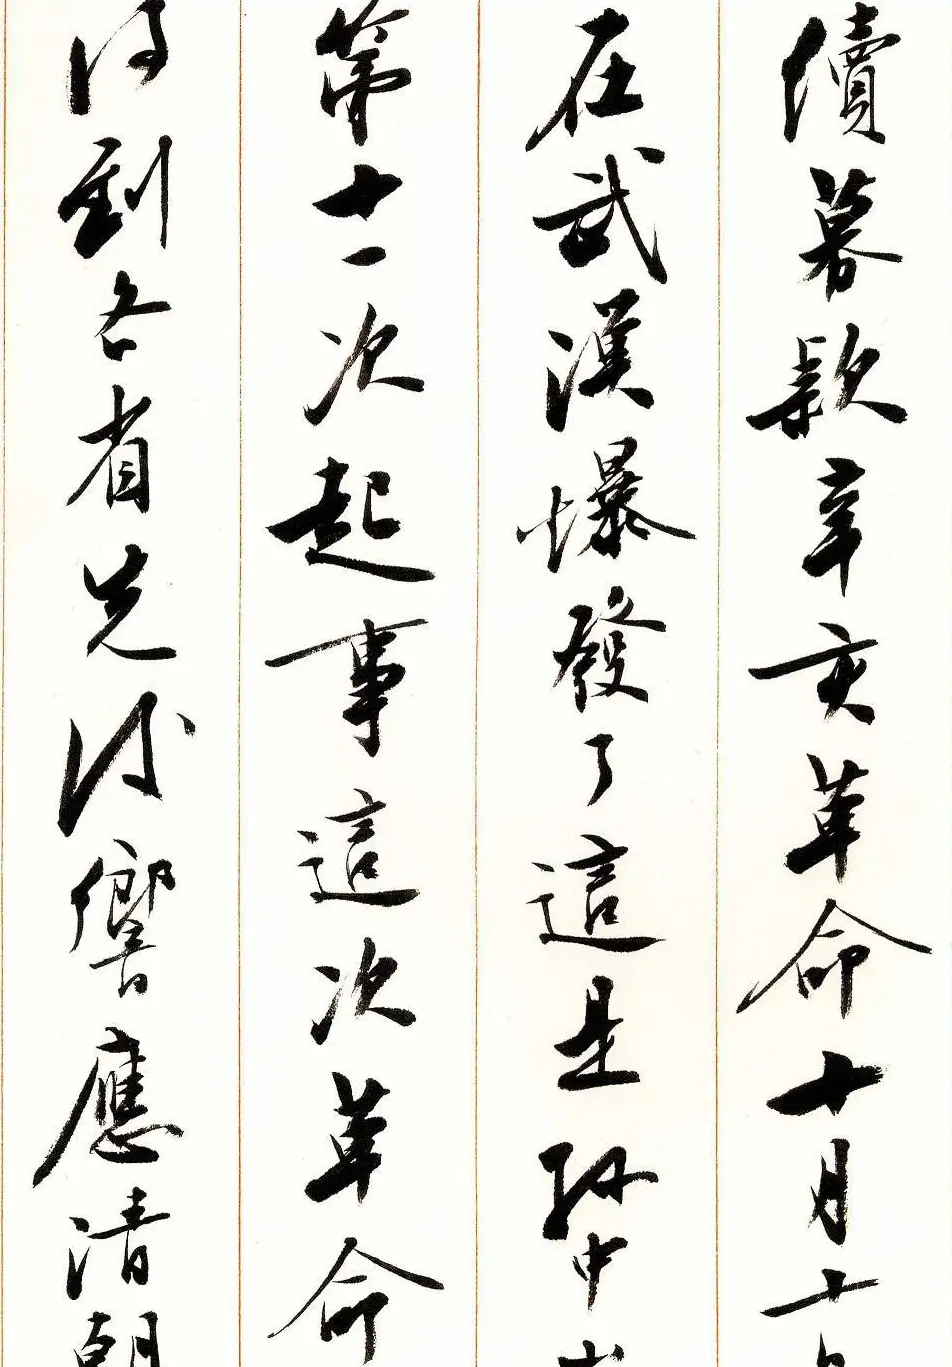 續募款辛亥革命十月十日
在武漢爆發了這是孫中山
第十一次起事這次革命
得到各省先後響應清朝